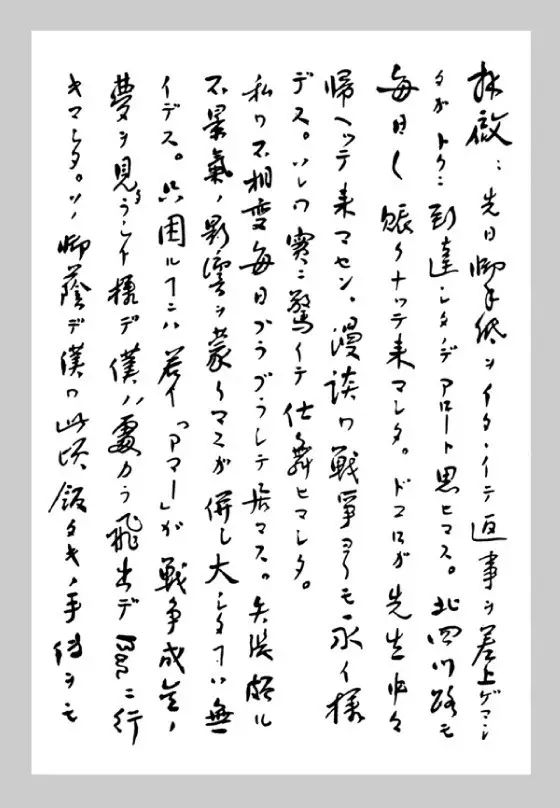 拝啓：先日御手紙ヲイタヾイテ返事ヲ差上ゲマシ
タガトクニ到達シタデアロート思ヒマス。北四川路モ
毎日〱賑クナッテ来マシタ。ドコロガ先生中々
帰ヘッテ来マセン。漫談ワ戦爭ヨリモ永イ様
デス。ソレワ實ニ驚イテ仕舞ヒマシタ。
私ワ不相変毎日ブラブラシテ居マス。矢張頗ル
不景氣ノ影響ヲ蒙リマスガ併し大シタヿハ無
イデス。只困ルヿニハ若イ「アマー」が戦争成金ノ
夢ヲ見タラシイ様デ僕ノ處カラ飛出デBarニ行
キマシタ。ソノ御蔭デ僕ワ此頃飯タキノ手伝ヲモ